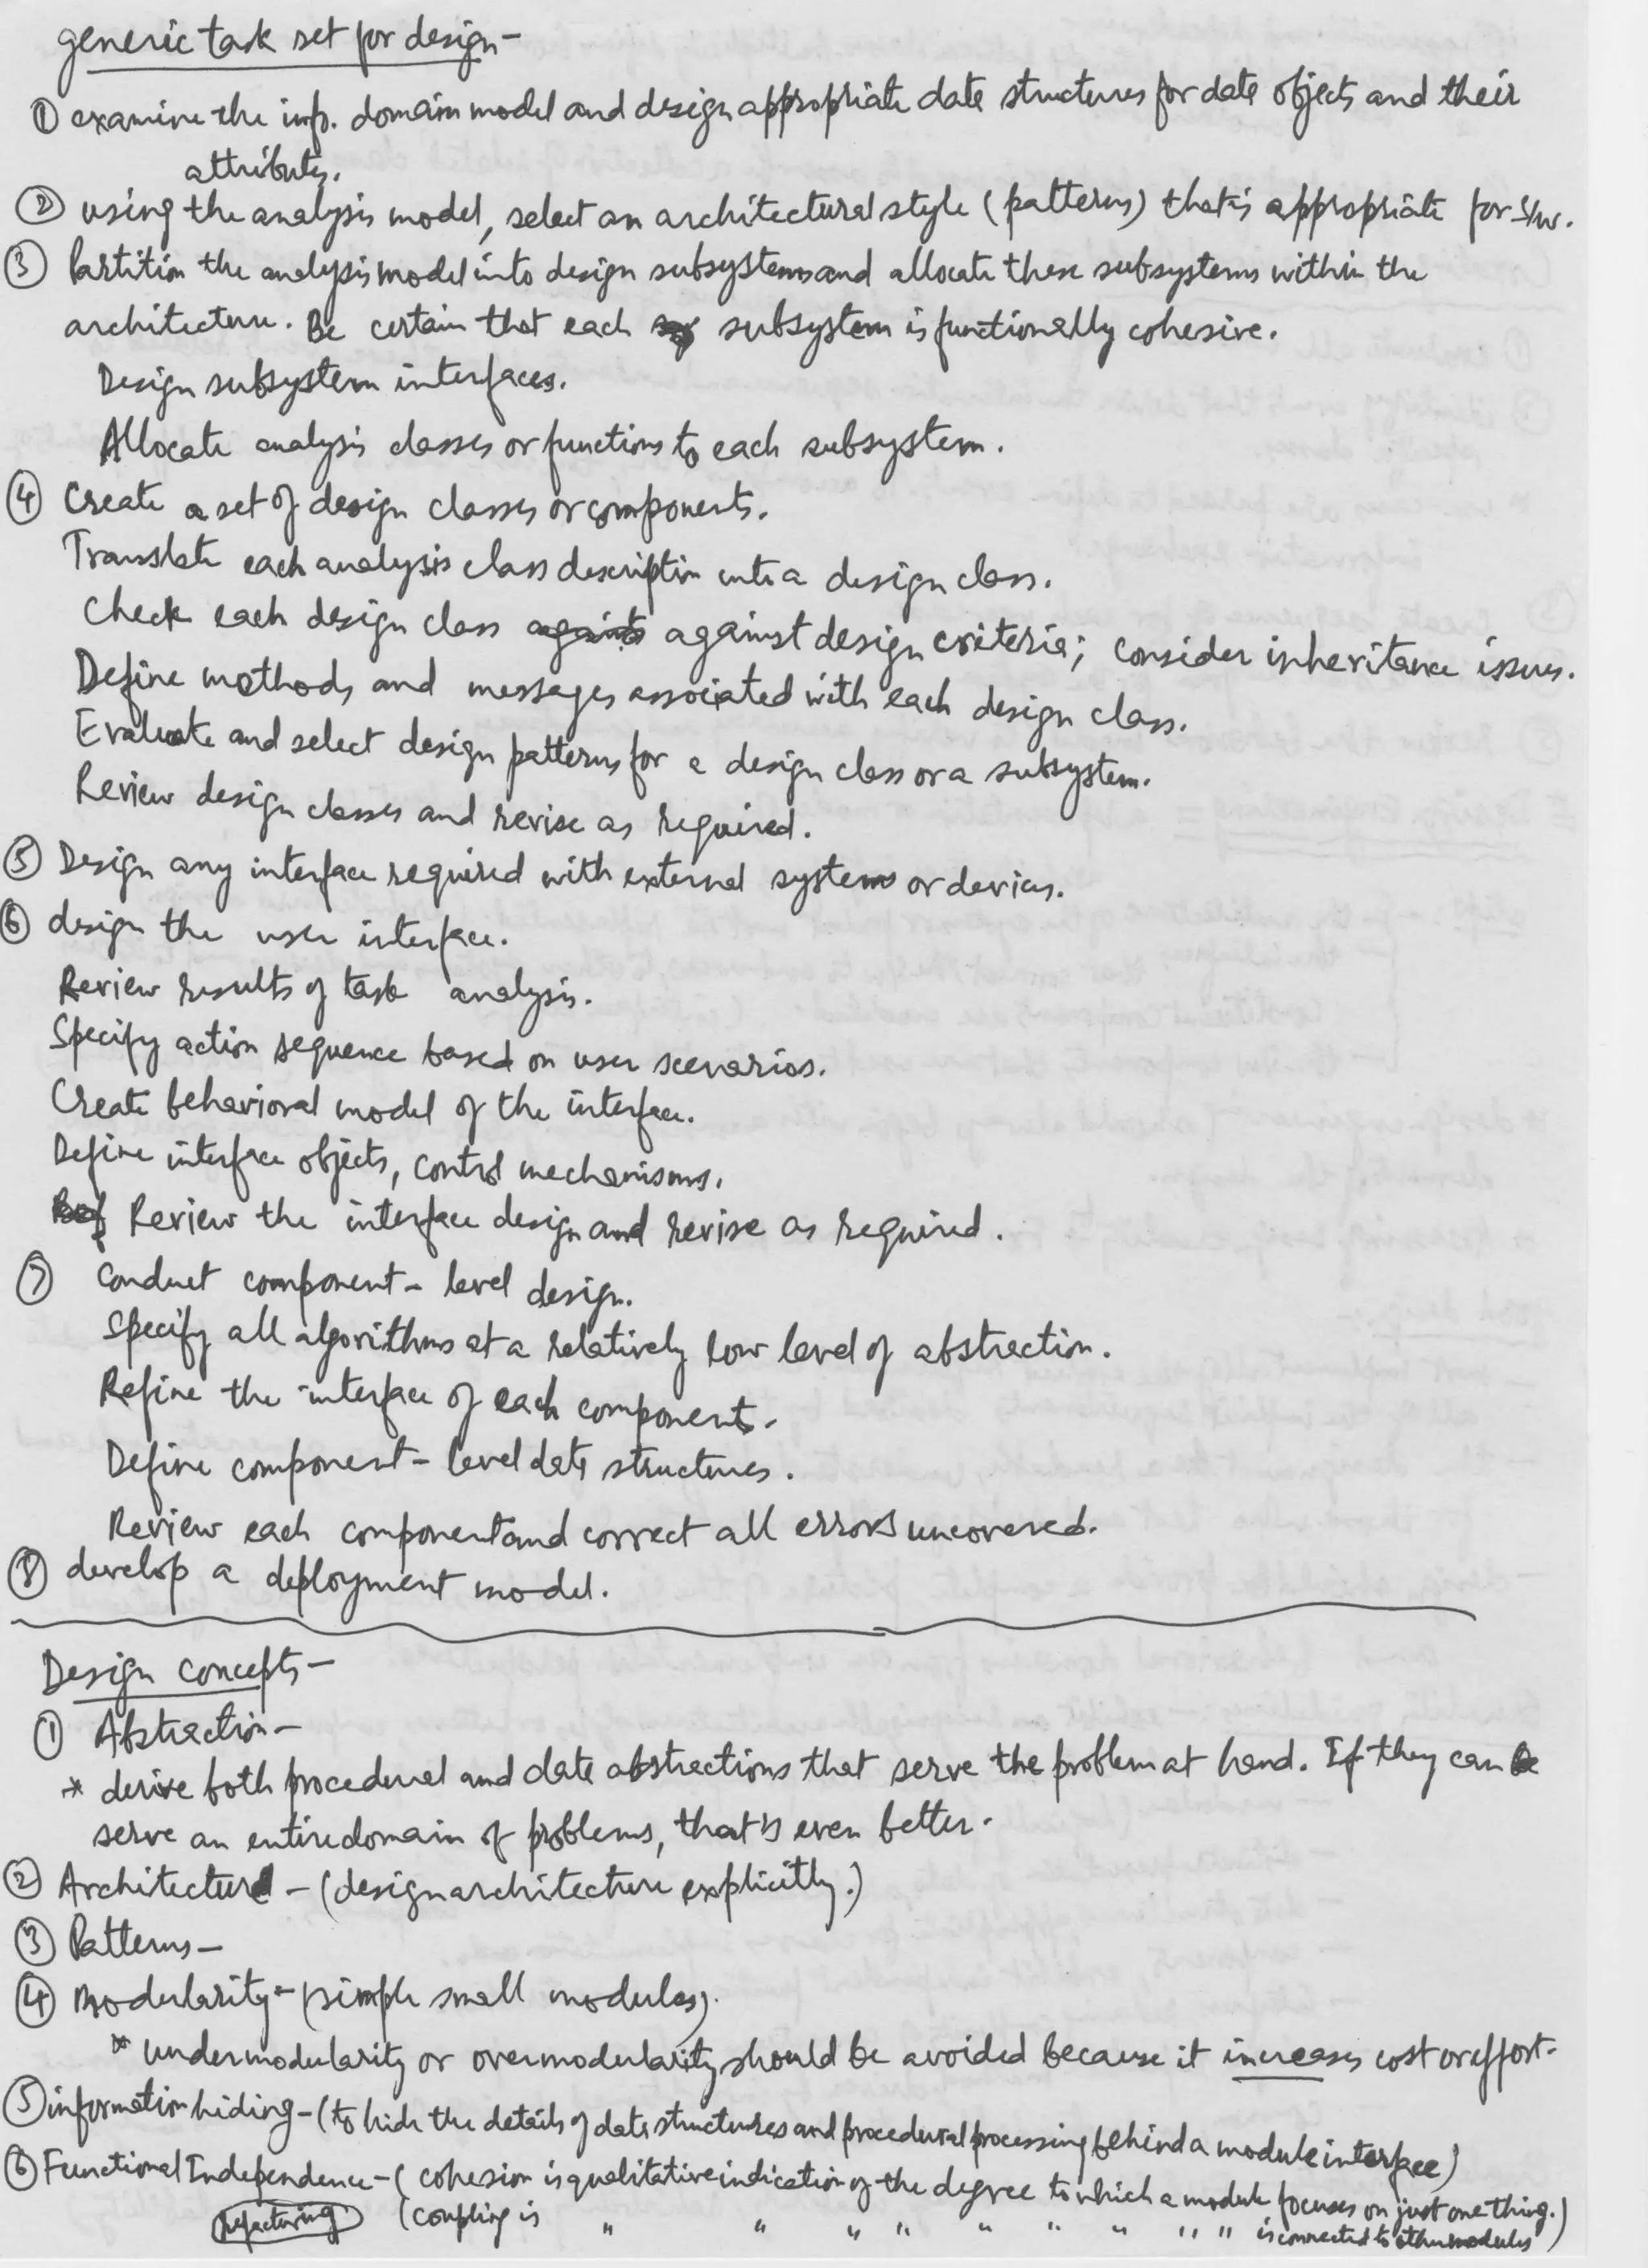 generic task set for design-
① examine the inf. domain model and design appropriate data structures for data objects and their
attributes.
② using the analysis model, select an architectural style (patterns) that's appropriate for S/w.
③ Partition the analysis model into design subsystems and allocate these subsystems within the
architecture. Be certain that each subsystem is functionally cohesive.
Design subsystem interfaces.
Allocate analysis classes or functions to each subsystem.
④ Create a set of design classes or components.
Translate each analysis class description into a design class.
Check each design class against design criteria; consider inheritance issues.
Define methods and messages associated with each design class.
Evaluate and select design patterns for a design class or a subsystem.
Review design classes and revise as required.
⑤ Design any interface required with external systems or devices.
⑥ design the user interface.
Review results of task analysis.
Specify action sequence based on user scenarios.
Create behavioral model of the interface.
Define interface objects, control mechanisms.
Review the interface design and revise as required.
⑦ Conduct component-level design.
Specify all algorithms at a relatively low level of abstraction.
Refine the interface of each component.
Define component-level data structures.
Review each component and correct all errors uncovered.
⑧ develop a deployment model.
Design Concepts-
① Abstraction-
* derive both procedural and data abstractions that serve the problem at hand. If they can
serve an entire domain of problems, that's even better.
② Architecture - (design architecture explicitly.)
③ Patterns-
④ Modularity - (simple small modules).
* undermodularity or overmodularity should be avoided because it increases cost or effort.
⑤ information hiding - (to hide the details of data structures and procedural processing behind a module interface)
⑥ Functional Independence - (cohesion is qualitative indication of the degree to which a module focuses on just one thing.)
Refactoring (Coupling is " " " " " " " " " is connected to other modules)